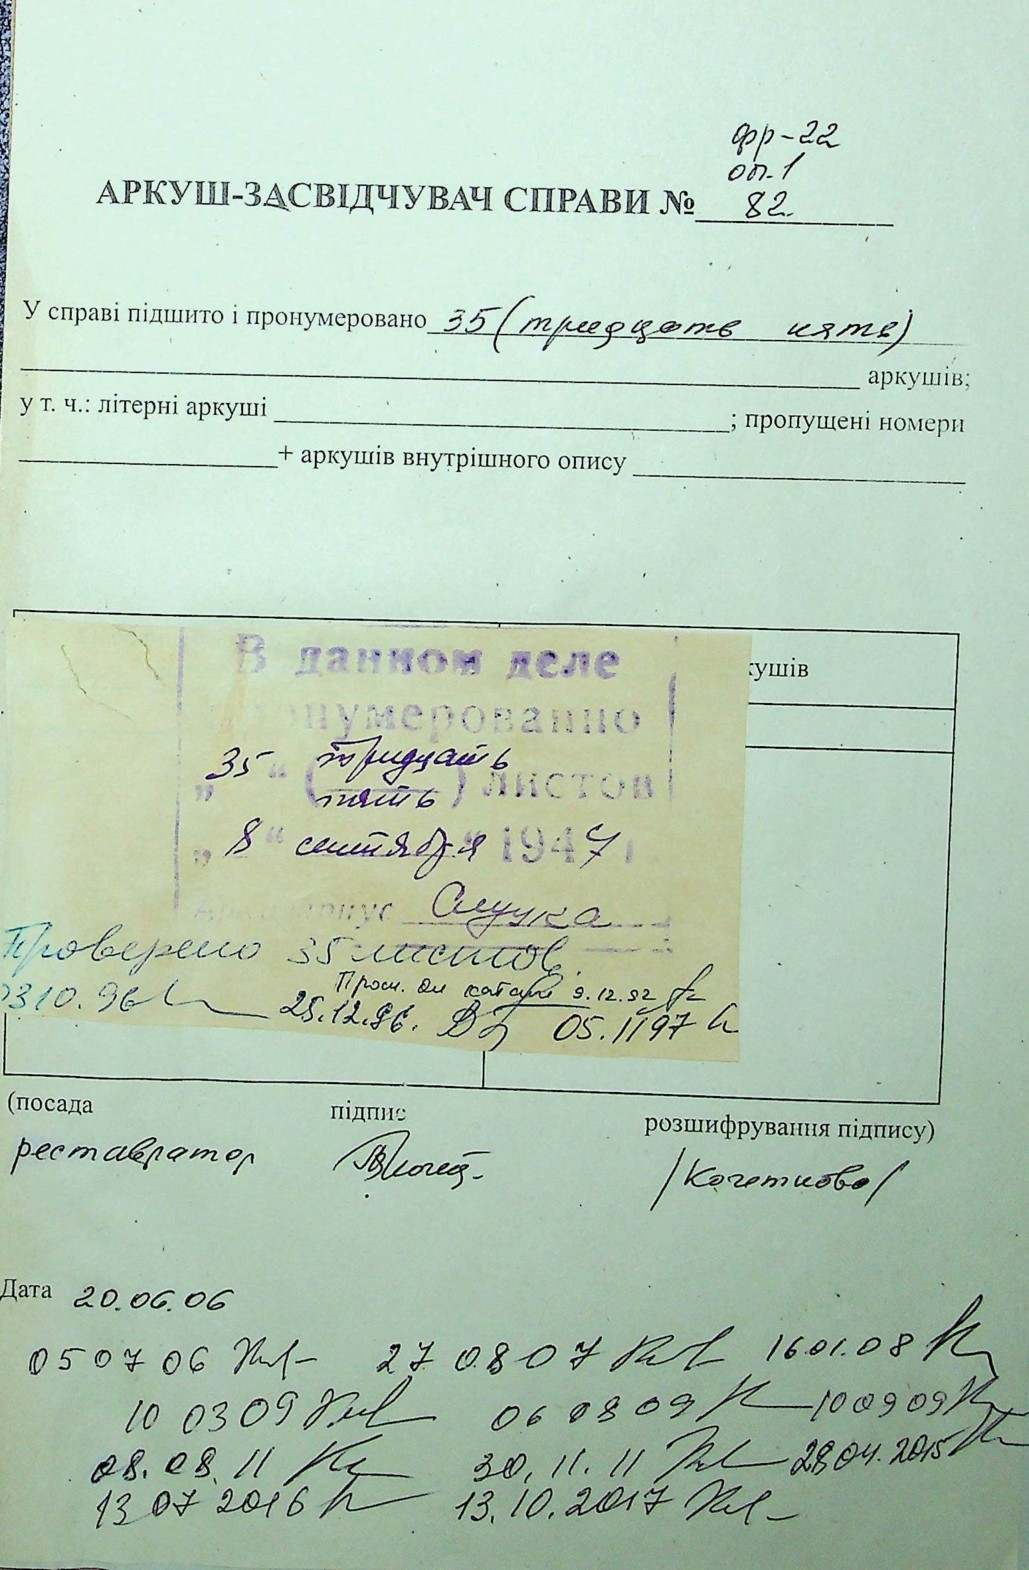 фр-22
оп.1
АРКУШ-ЗАСВІДЧУВАЧ СПРАВИ № 82
У справі підшито і пронумеровано 35 (тридцать пять)
аркушів;
у т. ч.: літерні аркуші ; пропущені номери
+ аркушів внутрішного опису
кушів
В данном деле
пронумерованно
35 тридцать
„ “ ( пять ) листов
„ 8 “ сентября 1947 г
Слука
Проверено 35 листов
9.12.92
23 10. 96 25.12.96. 05.11 97
(посада підпис розшифрування підпису)
реставратор /Кочеткова/
Дата 20.06.06
05 07 06 27 08 07 16.01.08
10 03 09 06 08 09 10 09 09
08.08.11 30.11.11 28.04.2015
13 07 2016 13.10.2017